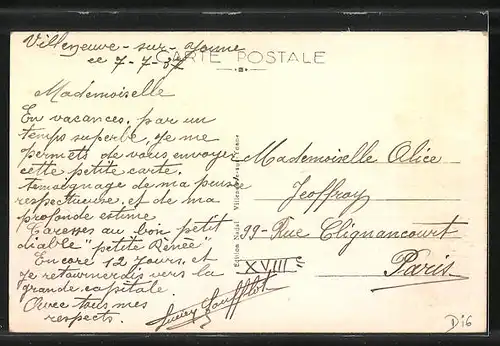 Villeneuve-sur-Yonne
CARTE POSTALE
ce 7-7-37
Mademoiselle
En vacances, par un
temps superbe, je me
permets de vous envoyer
cette petite carte.
temoignage de ma pensée
respectueuse, et de ma
profonde estime
Caresses au bon petit
diable "petite Renée"
Encore 12 jours, et
je retournerais vers la
grande capitale
Avec tous mes
respects.
Mademoiselle Alice
Jeoffroy
99-Rue Clignancourt
XVIII
Paris
Edition Nadal
D16